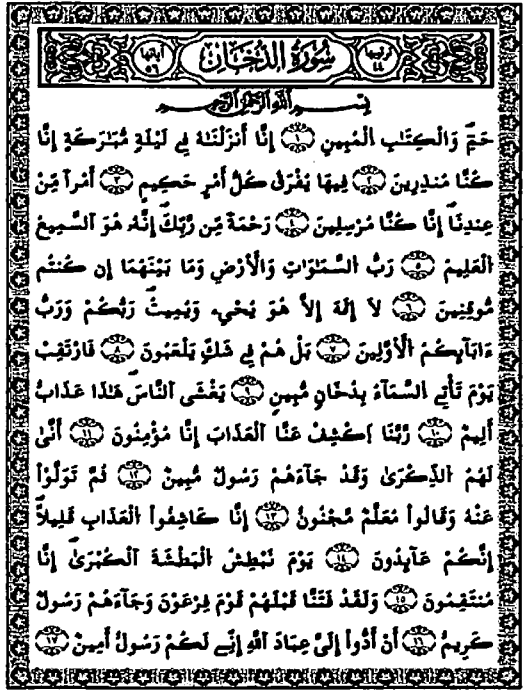 ترتيبها ٤٤ سُورَةُ الدُّخَانِ آياتها ٥٦
بِسْمِ اللَّهِ الرَّحْمَٰنِ الرَّحِيمِ
حَمٓ وَالْكِتَابِ الْمُبِينِ ١ إِنَّا أَنزَلْنَاهُ فِي لَيْلَةٍ مُّبَارَكَةٍ إِنَّا
كُنَّا مُنذِرِينَ ٢ فِيهَا يُفْرَقُ كُلُّ أَمْرٍ حَكِيمٍ ٣ أَمْراً مِّنْ
عِندِنَا إِنَّا كُنَّا مُرْسِلِينَ ٤ رَحْمَةً مِّن رَّبِّكَ إِنَّهُ هُوَ السَّمِيعُ
الْعَلِيمُ ٥ رَبُّ السَّمَاوَاتِ وَالْأَرْضِ وَمَا بَيْنَهُمَا إِن كُنتُم
مُّوقِنِينَ ٦ لاَ إِلَهَ إِلاَّ هُوَ يُحْيِي وَيُمِيتُ رَبُّكُمْ وَرَبُّ
ءَابَآئِكُمُ الْأَوَّلِينَ ٧ بَلْ هُمْ فِي شَكٍّ يَلْعَبُونَ ٨ فَارْتَقِبْ
يَوْمَ تَأْتِي السَّمَآءُ بِدُخَانٍ مُّبِينٍ ٩ يَغْشَى النَّاسَ هَٰذَا عَذَابٌ
أَلِيمٌ ١٠ رَّبَّنَا اَكْشِفْ عَنَّا الْعَذَابَ إِنَّا مُؤْمِنُونَ ١١ أَنَّىٰ
لَهُمُ الذِّكْرَىٰ وَقَدْ جَآءَهُمْ رَسُولٌ مُّبِينٌ ١٢ ثُمَّ تَوَلَّوْاْ
عَنْهُ وَقَالُواْ مُعَلَّمٌ مَّجْنُونٌ ١٣ إِنَّا كَاشِفُواْ الْعَذَابِ قَلِيلاً
إِنَّكُمْ عَآئِدُونَ ١٤ يَوْمَ نَبْطِشُ الْبَطْشَةَ الْكُبْرَىٰ إِنَّا
مُنتَقِمُونَ ١٥ وَلَقَدْ فَتَنَّا قَبْلَهُمْ قَوْمَ فِرْعَوْنَ وَجَآءَهُمْ رَسُولٌ
كَرِيمٌ ١٦ أَنْ أَدُّواْ إِلَيَّ عِبَادَ اللَّهِ إِنِّي لَكُمْ رَسُولٌ أَمِينٌ ١٧